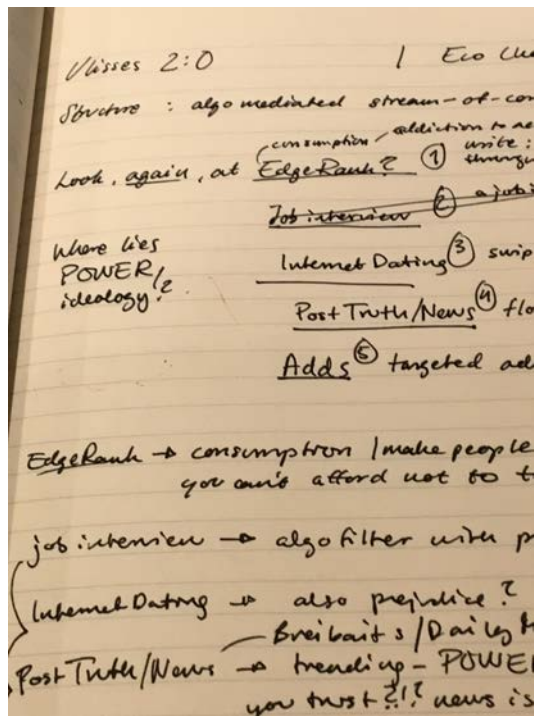 Ulisses 2:0 | Eco
Structure : algo mediated stream-of-con
consumption addiction to
Look, again, at EdgeRank? ① write :
Job interview ② a job
Where lies
POWER/
ideology?
Internet Dating ③ swip
Post Truth/News ④ flo
Adds ⑤ targeted ad
EdgeRank → consumption / make people
you can't afford not to
job interview → algo filter with p
Internet Dating → also prejudice ?
Breibaits / Daily
Post Truth/News → trending - POWE
you trust ?!? news is